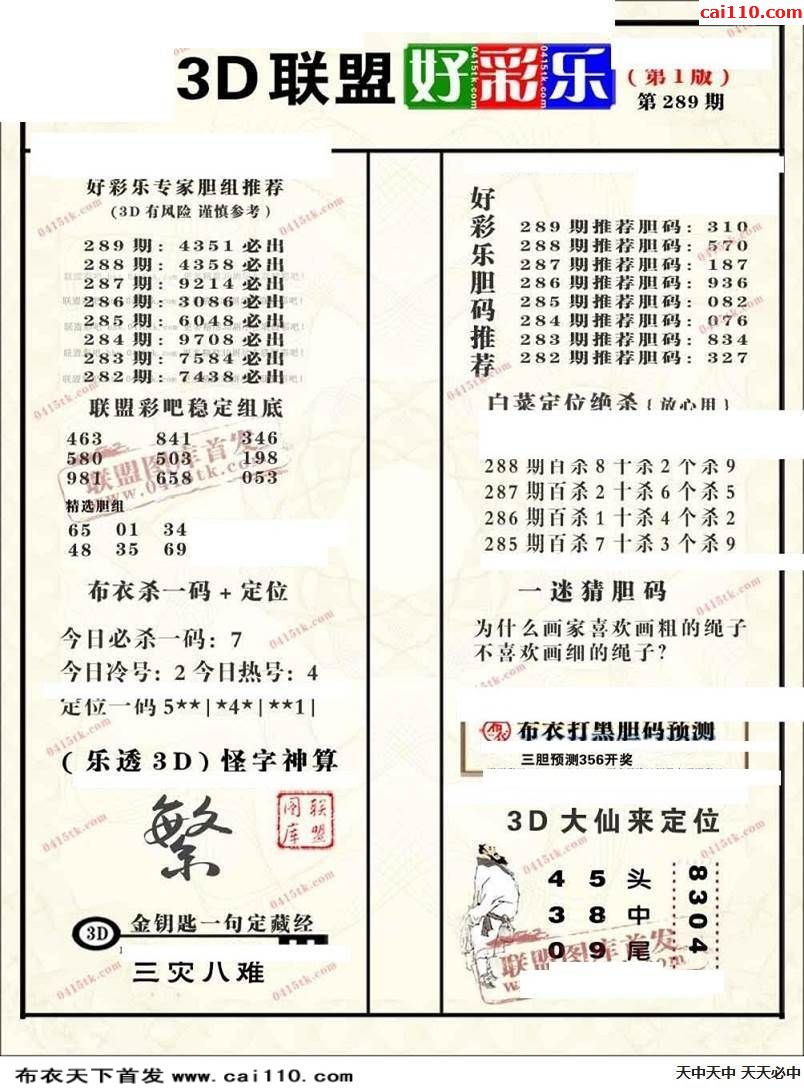 cai110.com
3D联盟好彩乐
(第1版)
第289期
好彩乐专家胆组推荐
(3D有风险 谨慎参考)
289期：4351必出
288期：4358必出
287期：9214必出
286期：3086必出
285期：6048必出
284期：9708必出
283期：7584必出
282期：7438必出
联盟彩吧稳定组底
463 841 346
580 503 198
981 658 053
联盟图库首发
www.0415tk.com
精选胆组
65 01 34
48 35 69
布衣杀一码+定位
今日必杀一码：7
今日冷号：2 今日热号：4
定位一码 5**|*4*|**1|
(乐透3D)怪字神算
繁
联盟图库
3D
金钥匙一句定藏经
三灾八难
好彩乐胆码推荐
289期推荐胆码：310
288期推荐胆码：570
287期推荐胆码：187
286期推荐胆码：936
285期推荐胆码：082
284期推荐胆码：076
283期推荐胆码：834
282期推荐胆码：327
白菜定位绝杀{放心用}
288期百杀8十杀2个杀9
287期百杀2十杀6个杀5
286期百杀1十杀4个杀2
285期百杀7十杀3个杀9
一迷猜胆码
为什么画家喜欢画粗的绳子
不喜欢画细的绳子?
布衣打黑胆码预测
三胆预测356开奖
3D大仙来定位
4 5 头
3 8 中
0 9 尾
8304
联盟图库首发
布衣天下首发 www.cai110.com
天中天中 天天必中